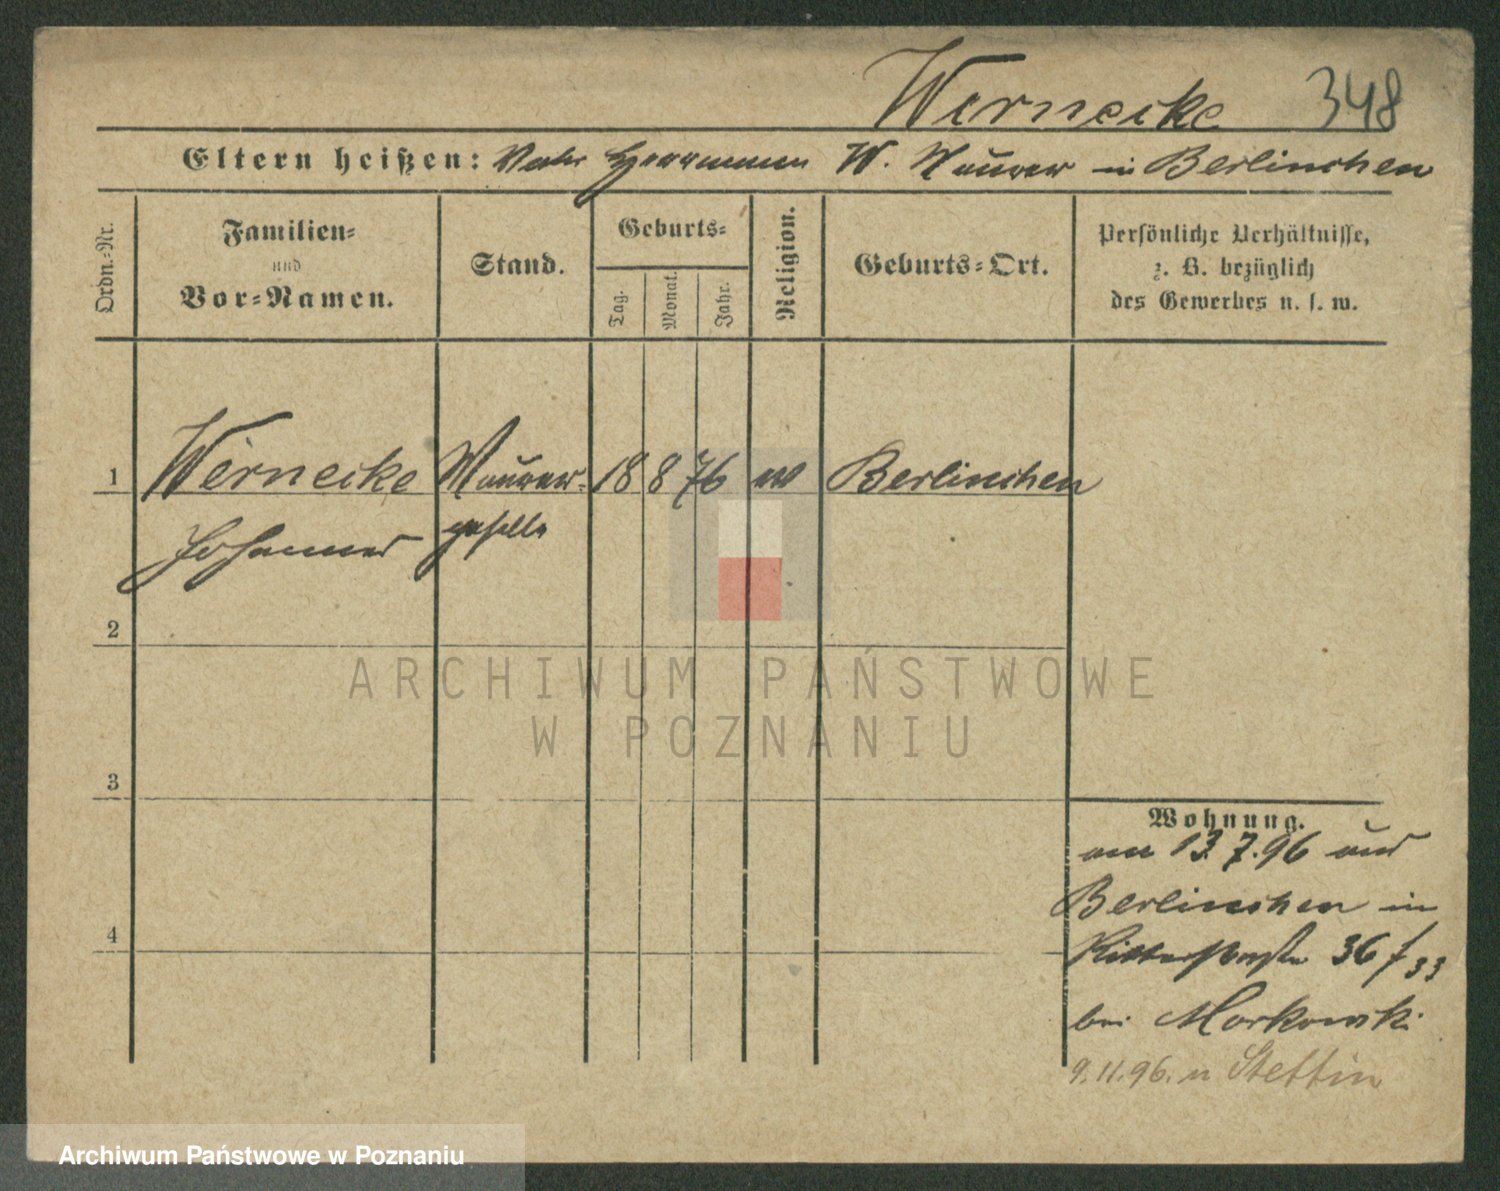 Wernecke 348
Eltern heißen: Vater Herrmann W. Maurer in Berlinchen
Ordn.=Nr.
Familien=
und
Vor=Namen.
Stand.
Geburts=
Tag.
Monat.
Jahr.
Religion.
Geburts=Ort.
Persönliche Verhältnisse,
z. B. bezüglich
des Gewerbes u. s. w.
1 Wernecke Maurer- 18 8 76 ev Berlinchen
Johannes geselle
2
3
4
Wohnung.
am 13.7.96 aus
Berlinchen in
Ritterstraße 36 / 33
bei Markowski
9.11.96. n Stettin
ARCHIWUM PAŃSTWOWE
W POZNANIU
Archiwum Państwowe w Poznaniu